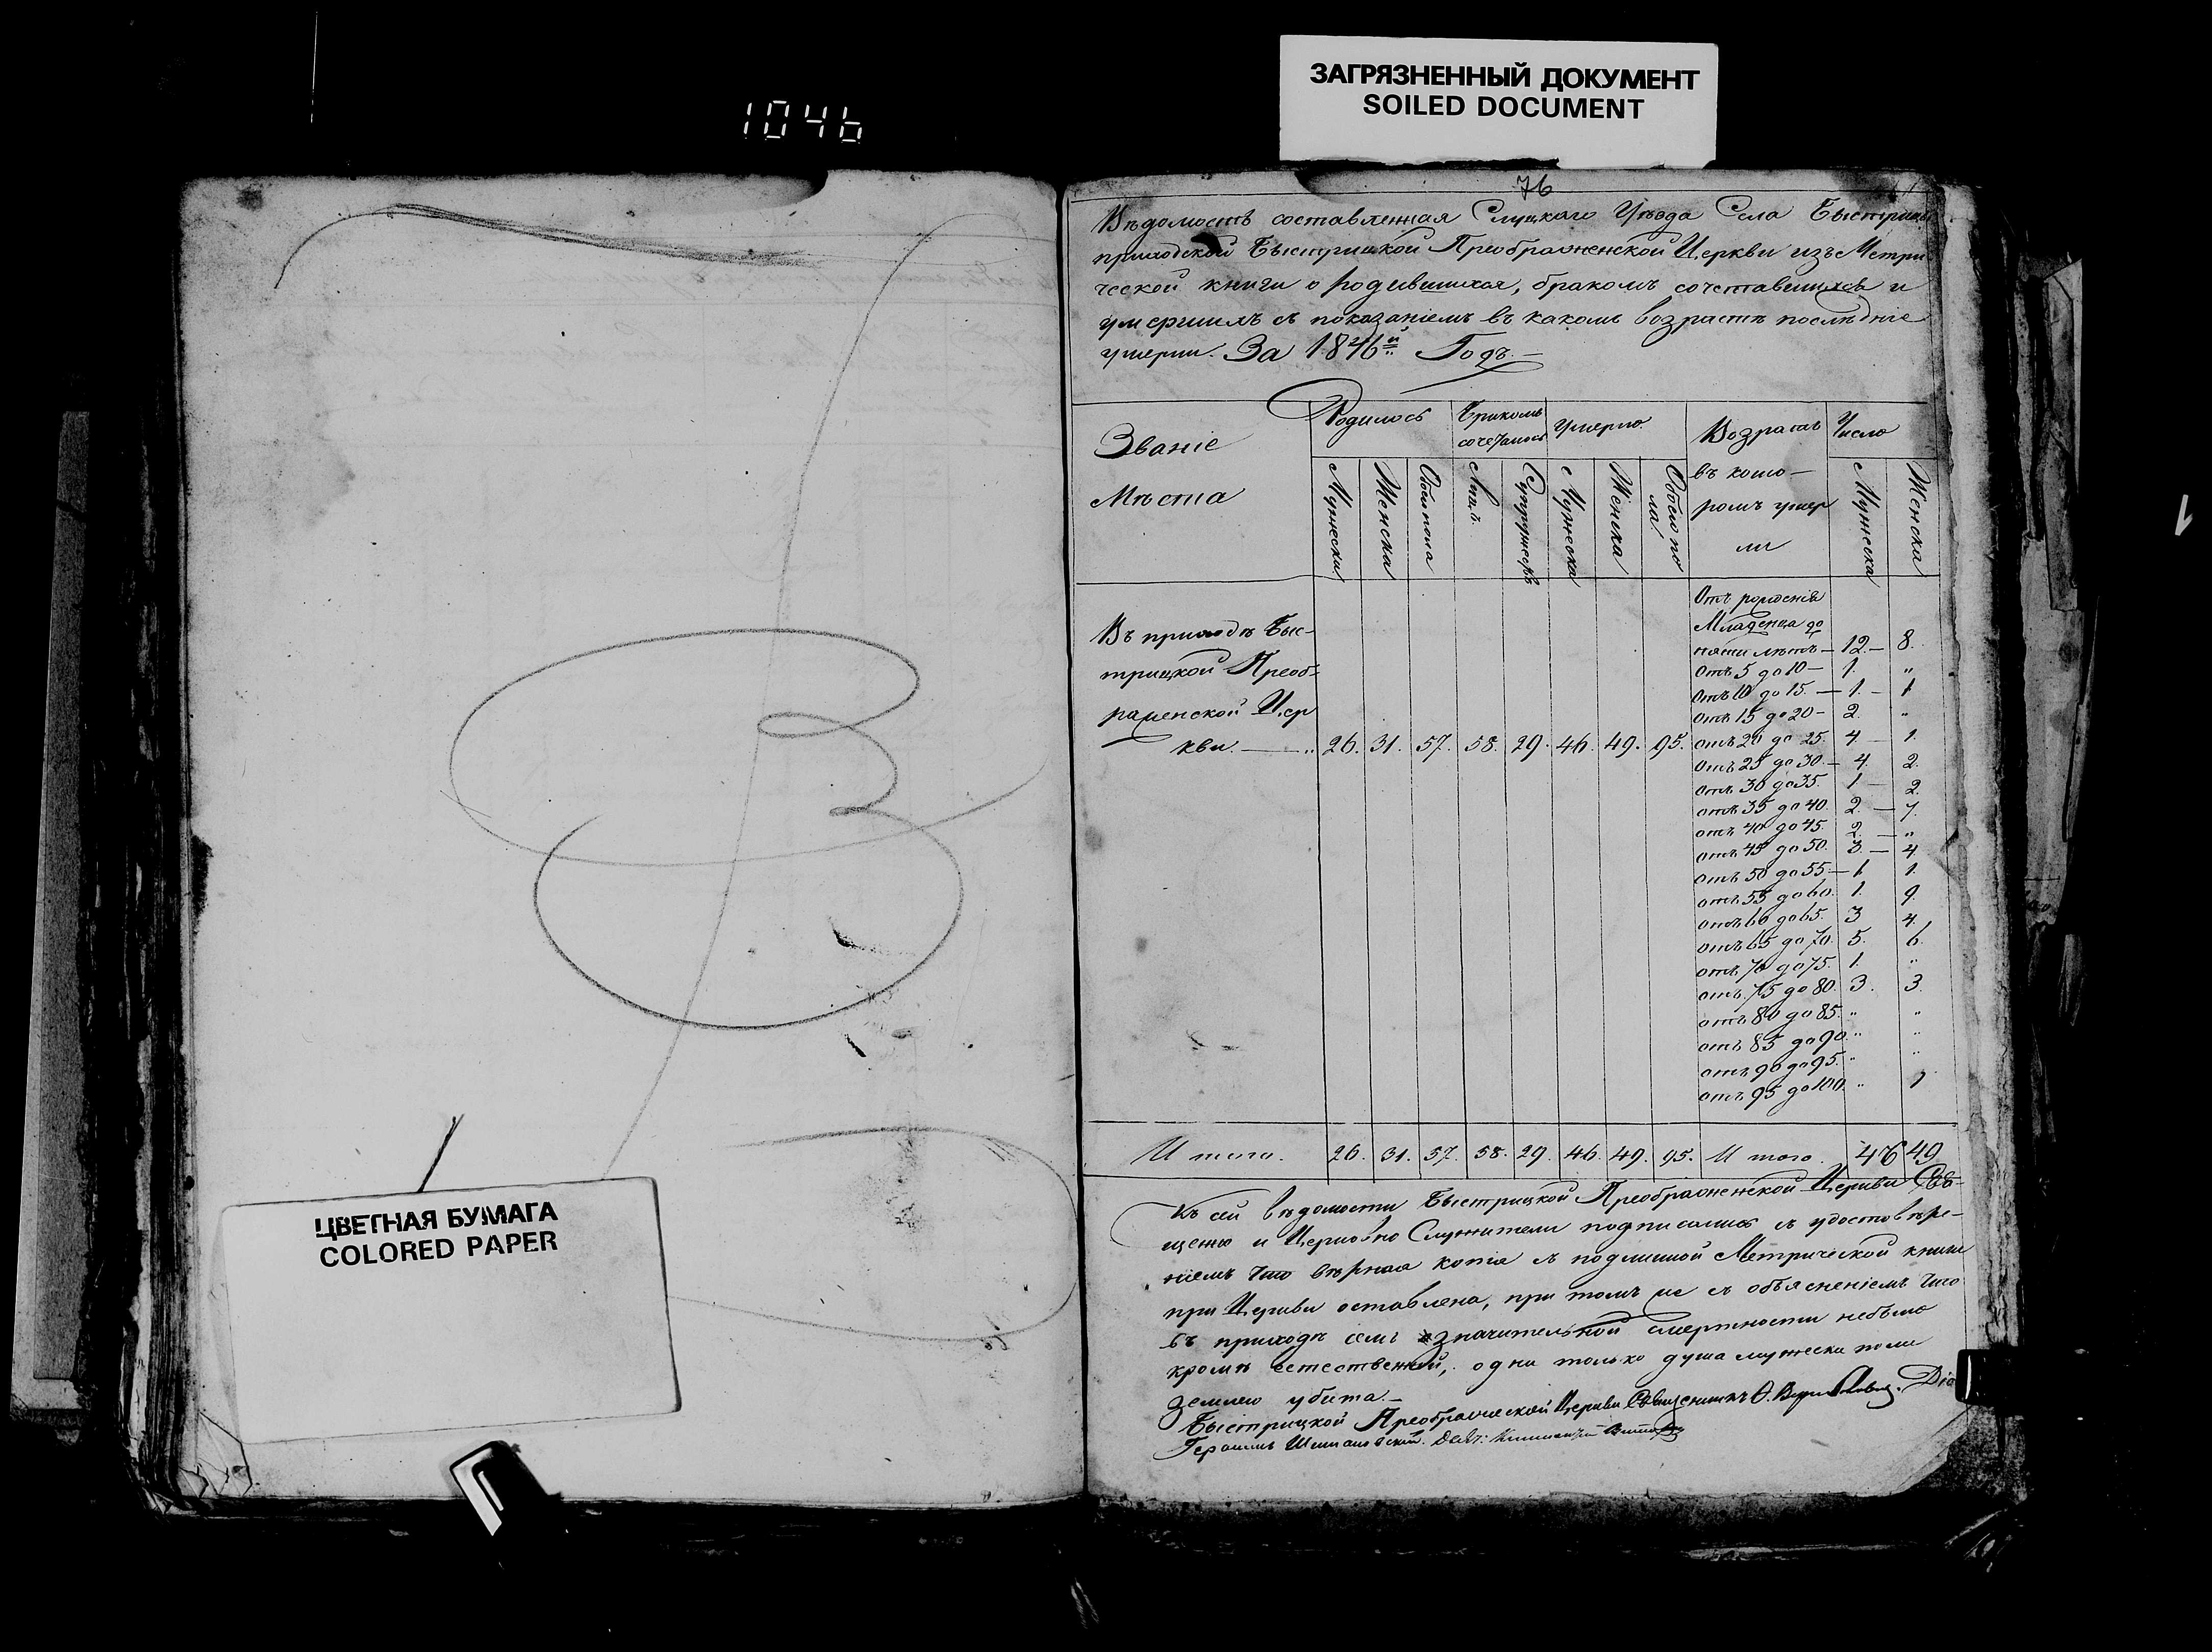 ЗАГРЯЗНЕННЫЙ ДОКУМЕНТ
SOILED DOCUMENT
1046
76
Вѣдомость составленная Слуцкаго Уѣзда Села Быстрицы
приходской Быстрицкой Преображенской Церкви изъ Метри
ческой книги о родившихся, бракомъ сочетавшихся и
умершихъ съ показаніемъ въ какомъ возрастѣ послѣдніе
умерли. За 1846й Годъ.
Званіе Мѣста
Родилось
Бракомъ сочеталось
Умерло
Возрастъ въ кото-ромъ умер ли
Число
Мужеска Женска Обоего пола Лицъ Супружествъ Мужеска Женска Обоего по ла Мужеска Женска
Отъ рожденія
Младенца до
пяти лѣтъ — 12. — 8.
отъ 5 до 10 — 1. „
отъ 10 до 15. — 1. — 1
отъ 15 до 20 — 2. „
Въ приходѣ Быс-
трицкой Преоб-
раженской Цер
кви. — „ 26. 31. 57. 58. 29. 46. 49. 95. отъ 20 до 25. 4 — 1.
отъ 25 до 30. — 4. 2.
отъ 30 до 35. 1 — 2.
отъ 35 до 40. 2. — 7.
отъ 40 до 45. 2. — „
отъ 45 до 50. 3. — 4.
отъ 50 до 55. — 1 1.
отъ 55 до 60. 1. 9.
отъ 60 до 65. 3 4.
отъ 65 до 70. 5. 6.
отъ 70 до 75. 1. „
отъ 75 до 80. 3. 3.
отъ 80 до 85. „ „
отъ 85 до 90. „ „
отъ 90 до 95. „ „
отъ 95 до 100. „ 1
Итого. 26. 31. 57. 58. 29. 46. 49. 95. Итого. 46 49
Къ сей вѣдомости Быстрицкой Преображенской Церкви Свя-
щенно и Церковно Служители подписались съ удостовѣре-
ніемъ что вѣрная копія съ подлинной Метрической книги
при Церкви оставлена, при томъ же съ объясненіемъ что
въ приходѣ семъ значительной смертности небыло
кромѣ естественной, одна только душа мужеска пола
землею убита. —
Быстрицкой Преображенской Церкви Священникъ
ЦВЕТНАЯ БУМАГА
COLORED PAPER